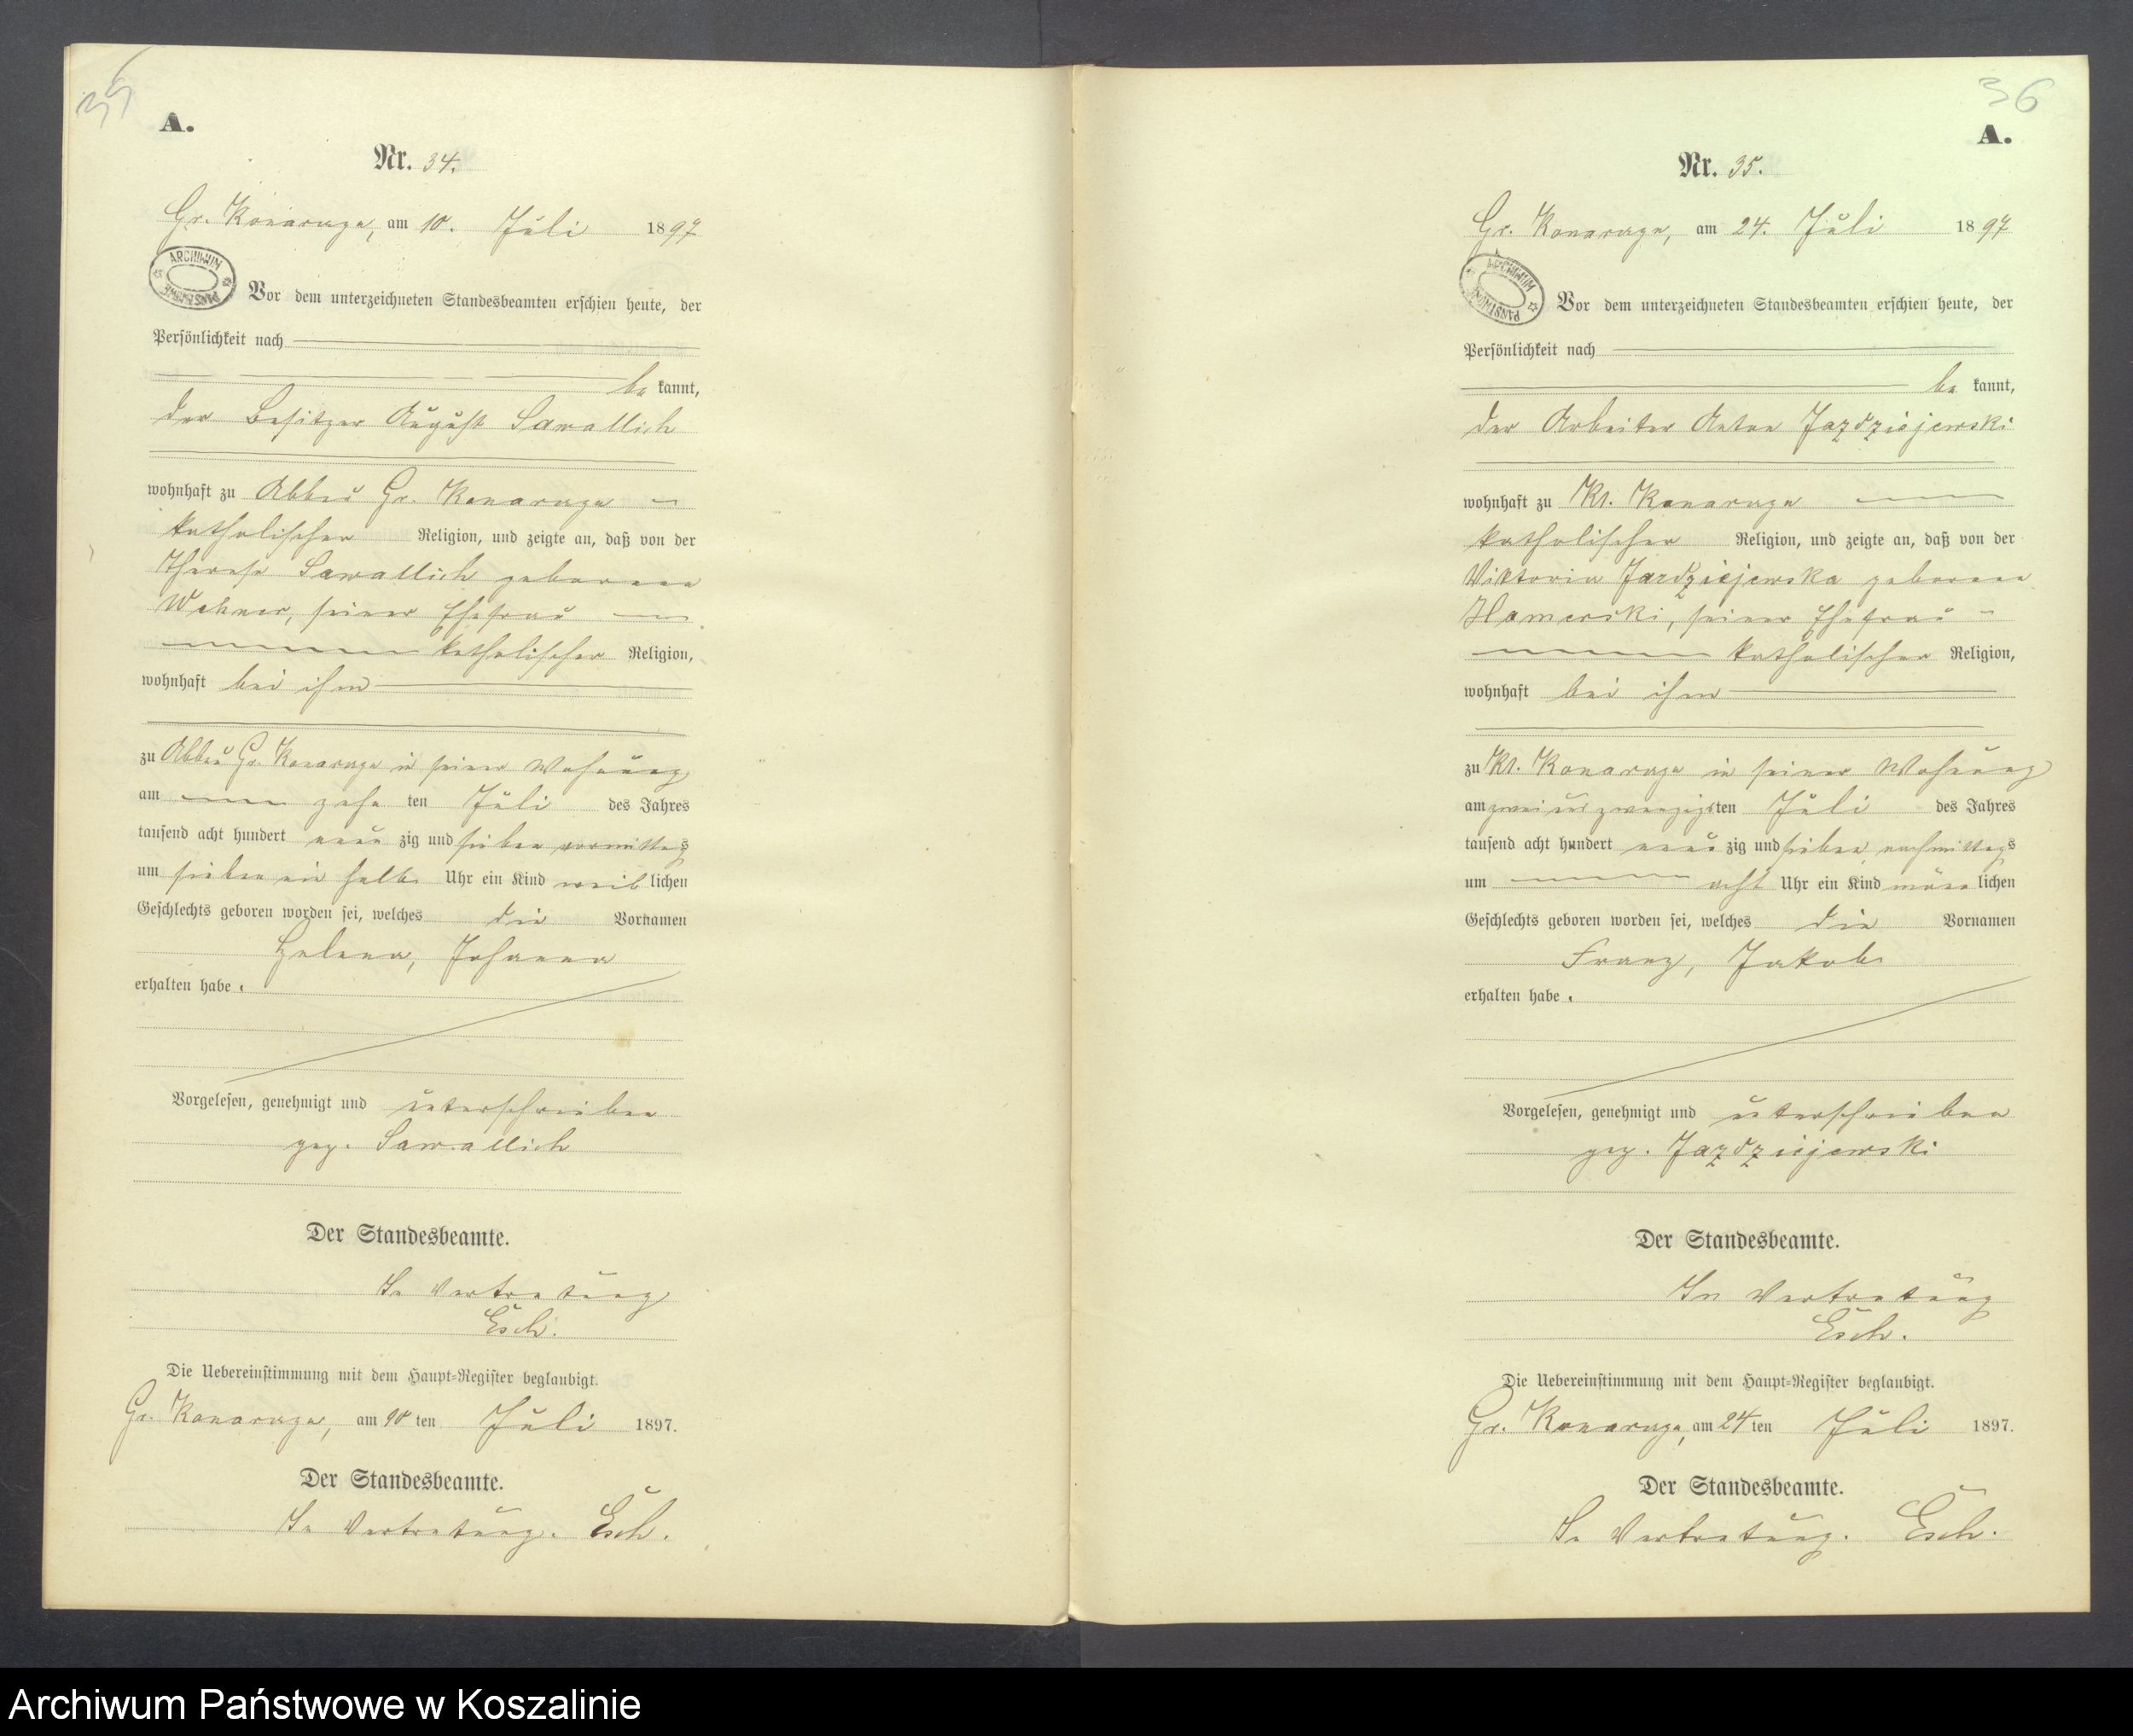 35
A.
Nr. 34.
Gr. Konarczyn, am 10. Juli 1897
ARCHIWUM PAŃSTWOWE
Vor dem unterzeichneten Standesbeamten erschien heute, der
Persönlichkeit nach
be kannt,
der Besitzer August Sawallich
wohnhaft zu Abbau Gr. Konarczyn
katholischer Religion, und zeigte an, daß von der
Therese Sawallich geborenen
Wehner, seiner Ehefrau
katholischer Religion,
wohnhaft bei ihm
zu Abbau Gr. Konarczyn in seiner Wohnung
am zehn ten Juli des Jahres
tausend acht hundert neun zig und sieben vormittags
um sieben ein halb Uhr ein Kind weib lichen
Geschlechts geboren worden sei, welches die Vornamen
Helena, Johanna
erhalten habe.
Vorgelesen, genehmigt und unterschrieben
gez. Sawallich
Der Standesbeamte.
In Vertretung
Esch.
Die Uebereinstimmung mit dem Haupt-Register beglaubigt.
Gr. Konarczyn, am 10 ten Juli 1897.
Der Standesbeamte.
In Vertretung. Esch.
36
A.
Nr. 35.
Gr. Konarczyn, am 24. Juli 1897
ARCHIWUM PAŃSTWOWE
Vor dem unterzeichneten Standesbeamten erschien heute, der
Persönlichkeit nach
be kannt,
der Arbeiter Anton Jazdziejewski
wohnhaft zu Kl. Konarczyn
katholischer Religion, und zeigte an, daß von der
Viktoria Jazdziejewska geborenen
Hamerski, seiner Ehefrau
katholischer Religion,
wohnhaft bei ihm
zu Kl. Konarczyn in seiner Wohnung
am zwei und zwanzigsten Juli des Jahres
tausend acht hundert neun zig und sieben nachmittags
um acht Uhr ein Kind männ lichen
Geschlechts geboren worden sei, welches die Vornamen
Franz, Jakob
erhalten habe.
Vorgelesen, genehmigt und unterschrieben
gez. Jazdziejewski
Der Standesbeamte.
In Vertretung
Esch.
Die Uebereinstimmung mit dem Haupt-Register beglaubigt.
Gr. Konarczyn, am 24 ten Juli 1897.
Der Standesbeamte.
In Vertretung. Esch.
Archiwum Państwowe w Koszalinie